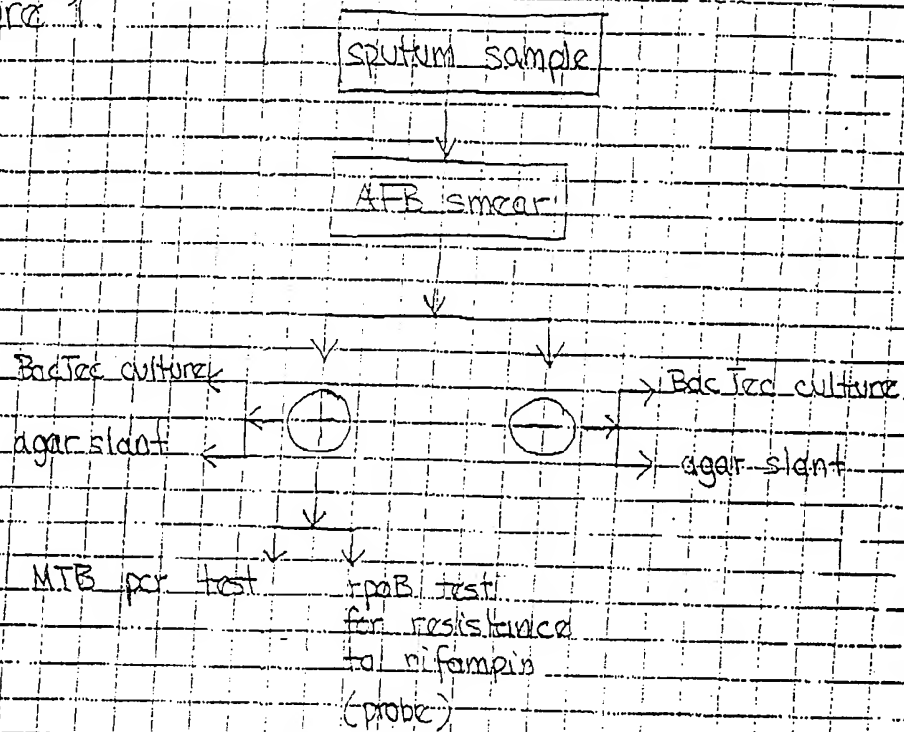 re 1.
sputum sample
AFB smear
BacTec culture
agar slant
+
−
BacTec culture
agar slant
MTB pcr test
rpoB test
for resistance
to rifampin
(probe)